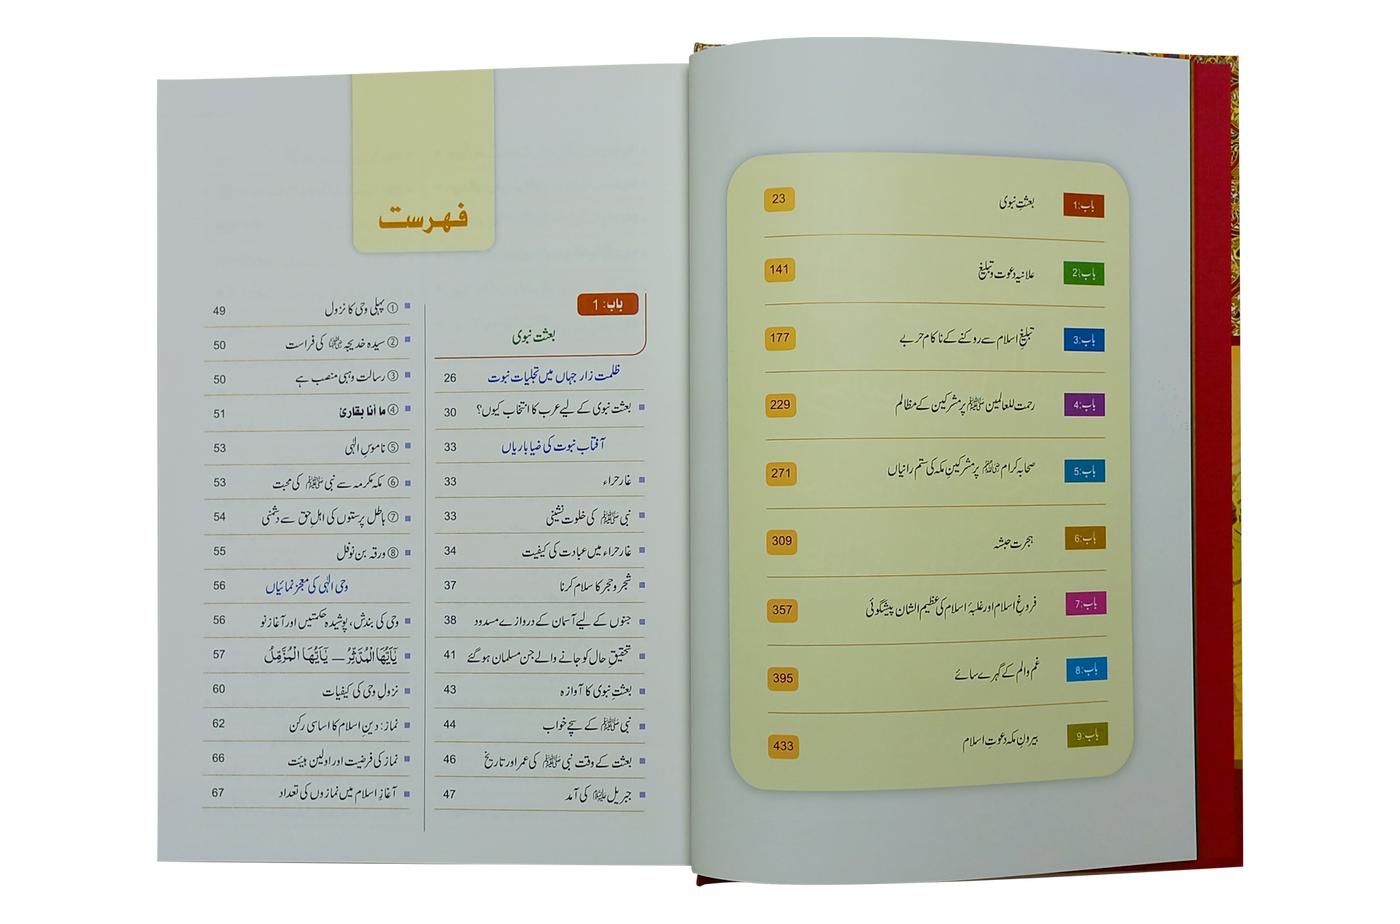 باب:1 بعثتِ نبوی 23
باب:2 علانیہ دعوت و تبلیغ 141
باب:3 تبلیغِ اسلام سے روکنے کے ناکام حربے 177
باب:4 رحمت للعالمین ﷺ پر مشرکین کے مظالم 229
باب:5 صحابہ کرام رضی اللہ عنہم پر مشرکینِ مکہ کی ستم رانیاں 271
باب:6 ہجرت حبشہ 309
باب:7 فروغِ اسلام اور غلبۂ اسلام کی عظیم الشان پیشگوئی 357
باب:8 غم و الم کے گہرے سائے 395
باب:9 بیرونِ مکہ دعوتِ اسلام 433
فہرست
باب: 1
بعثت نبوی
ظلمت زار جہاں میں تجلیات نبوت 26
بعثت نبوی کے لیے عرب کا انتخاب کیوں؟ 30
آفتاب نبوت کی ضیا باریاں 33
غار حراء 33
نبی ﷺ کی خلوت نشینی 33
غار حراء میں عبادت کی کیفیت 34
شجر و حجر کا سلام کرنا 37
جنوں کے لیے آسمان کے دروازے مسدود 38
تحقیقِ حال کو جانے والے جن مسلمان ہو گئے 41
بعثتِ نبوی کا آوازہ 43
نبی ﷺ کے سچے خواب 44
بعثت کے وقت نبی ﷺ کی عمر اور تاریخ 46
جبریل علیہ السلام کی آمد 47
① پہلی وحی کا نزول 49
② سیدہ خدیجہ رضی اللہ عنہا کی فراست 50
③ رسالت وہبی منصب ہے 50
④ ما أنا بقارئ 51
⑤ ناموسِ الٰہی 53
⑥ مکہ مکرمہ سے نبی ﷺ کی محبت 53
⑦ باطل پرستوں کی اہلِ حق سے دشمنی 54
⑧ ورقہ بن نوفل 55
وحی الٰہی کی معجز نمائیاں 56
وحی کی بندش، پوشیدہ حکمتیں اور آغازِ نو 56
يٰٓاَيُّهَا الْمُدَّثِّرُ — يٰٓاَيُّهَا الْمُزَّمِّلُ 57
نزولِ وحی کی کیفیات 60
نماز: دینِ اسلام کا اساسی رکن 62
نماز کی فرضیت اور اولین ہیئت 66
آغازِ اسلام میں نمازوں کی تعداد 67